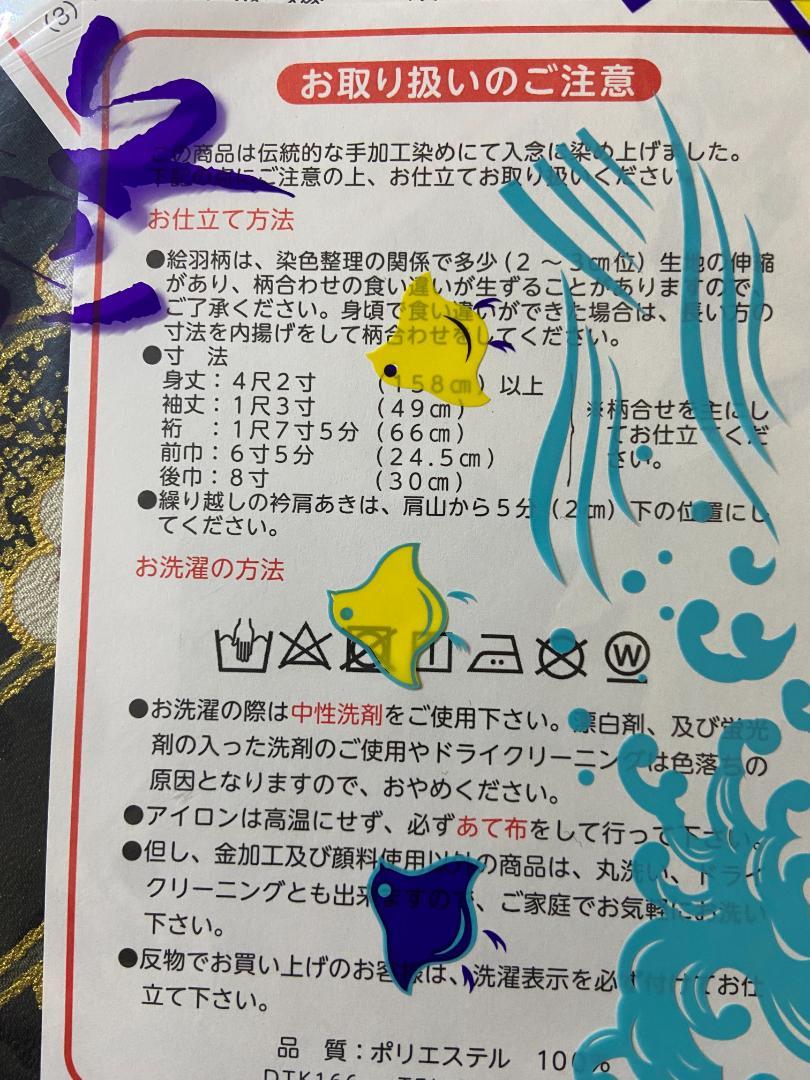 (3)
お取り扱いのご注意
この商品は伝統的な手加工染めにて入念に染め上げました。
下記の点にご注意の上、お仕立てお取り扱いください。
お仕立て方法
●絵羽柄は、染色整理の関係で多少(2～3㎝位)生地の伸縮
があり、柄合わせの食い違いが生ずることがありますので、
ご了承ください。身頃で食い違いができた場合は、長い方の
寸法を内揚げをして柄合わせをしてください。
●寸 法
身丈：4尺2寸 (158㎝)以上
袖丈：1尺3寸 (49㎝)
裄 ：1尺7寸5分 (66㎝)
前巾：6寸5分 (24.5㎝)
後巾：8寸 (30㎝)
※柄合せを主にし
てお仕立てくだ
さい。
●繰り越しの衿肩あきは、肩山から5分(2㎝)下の位置にし
てください。
お洗濯の方法
W
●お洗濯の際は中性洗剤をご使用下さい。漂白剤、及び蛍光
剤の入った洗剤のご使用やドライクリーニングは色落ちの
原因となりますので、おやめください。
●アイロンは高温にせず、必ずあて布をして行って下さい。
●但し、金加工及び顔料使用以外の商品は、丸洗い、ドライ
クリーニングとも出来ますので、ご家庭でお気軽にお洗い
下さい。
●反物でお買い上げのお客様は、洗濯表示を必ず付けてお仕
立て下さい。
品 質：ポリエステル 100%